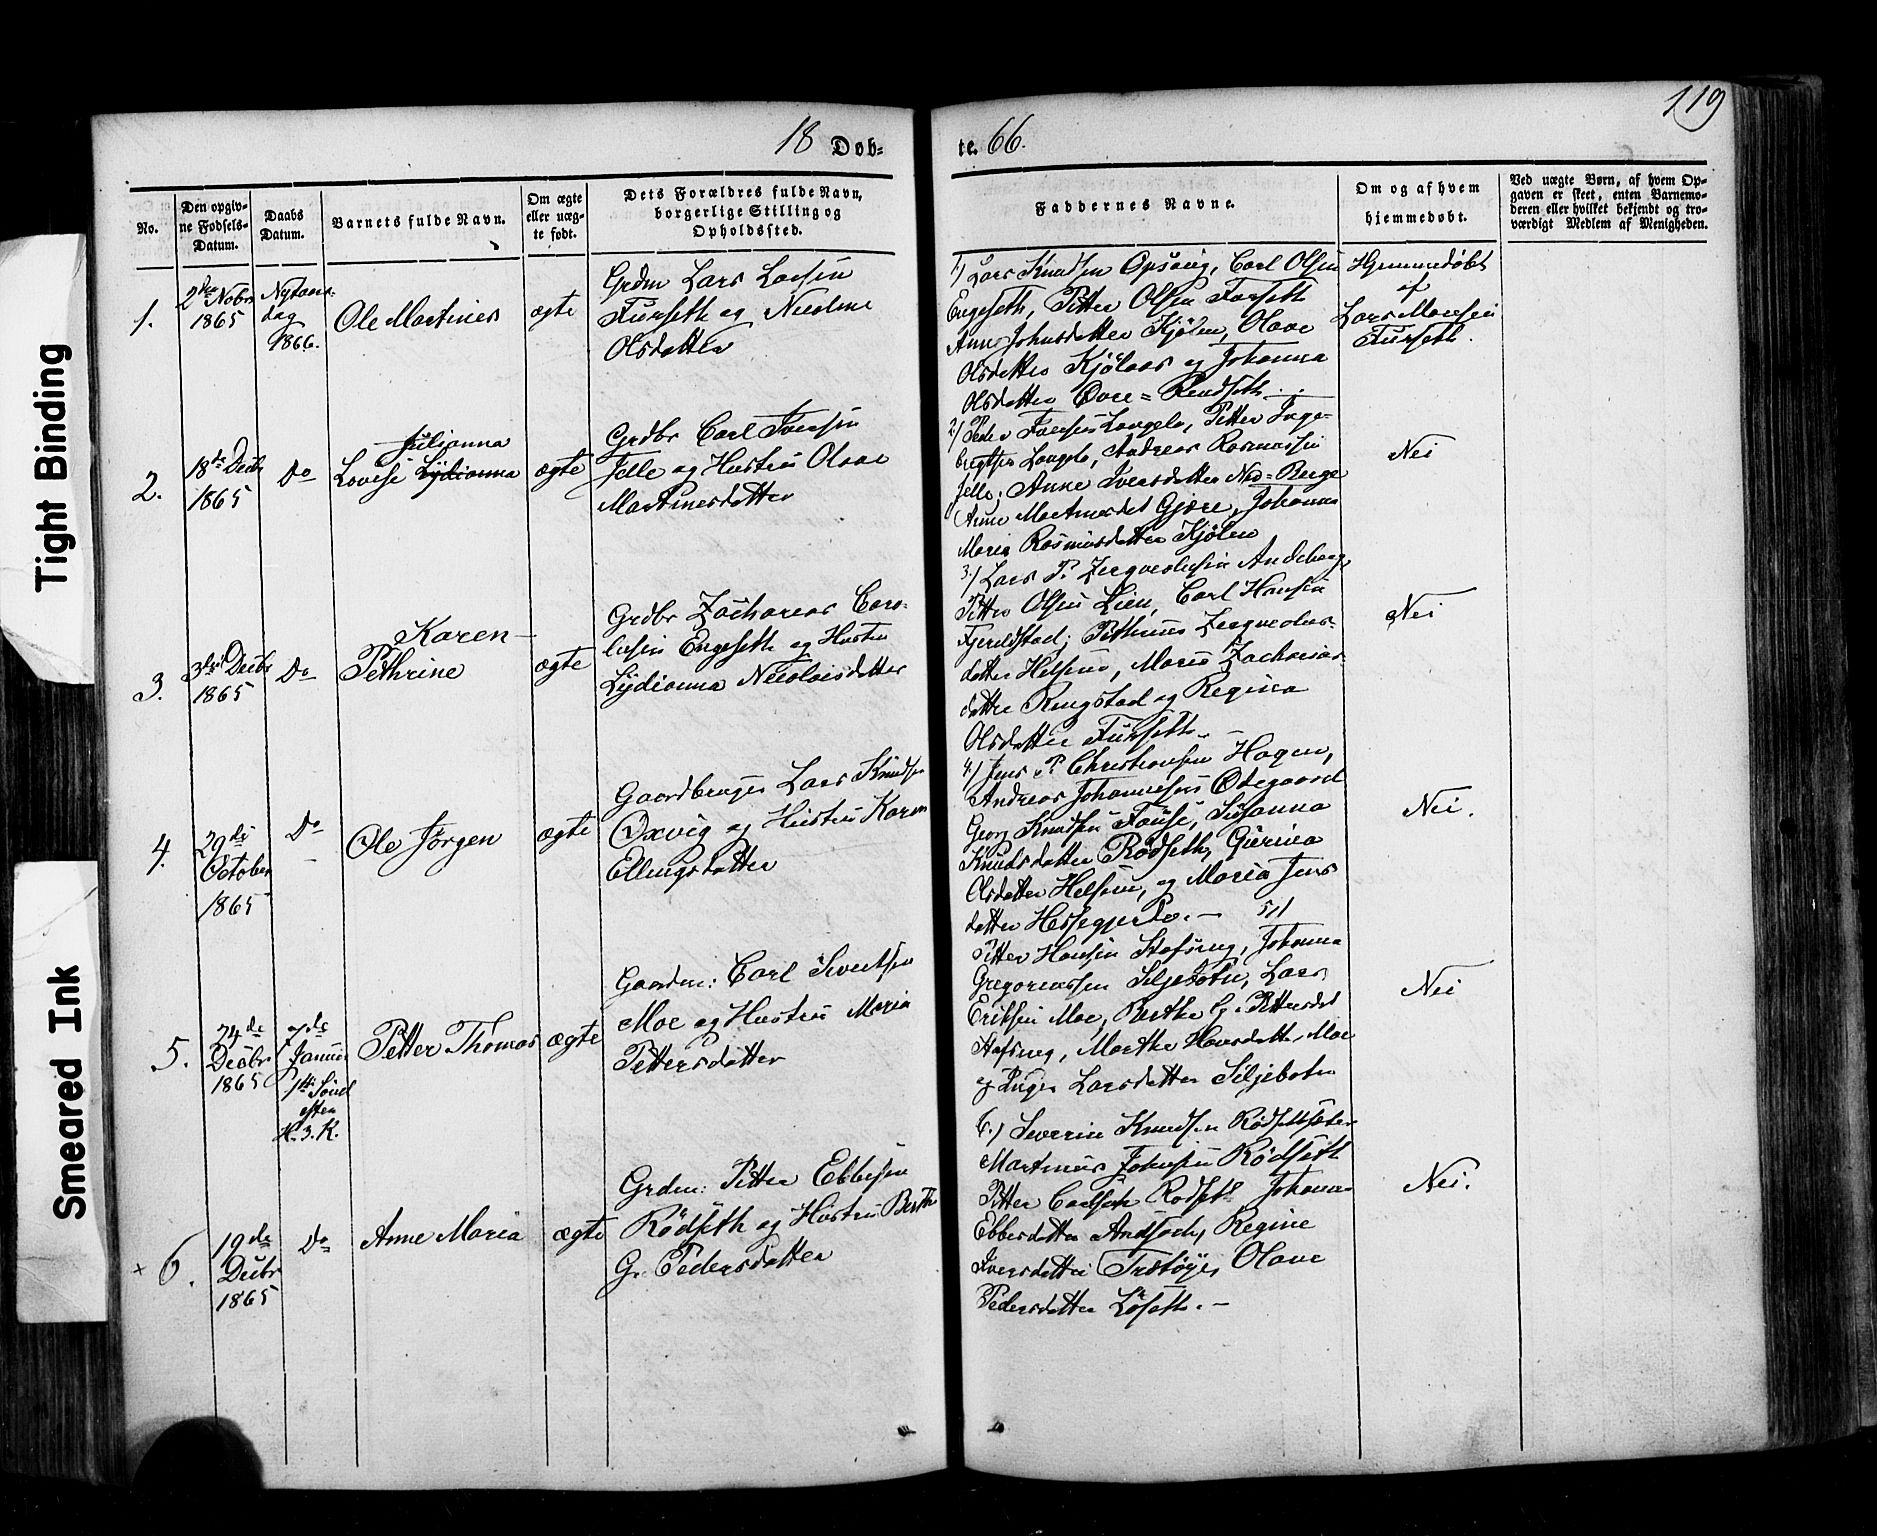 119
18 Døb-
te. 66.
No.
Den opgiv-
ne Fødsels-
Datum.
Daabs
Datum.
Barnets fulde Navn.
Om ægte
eller uæg-
te født.
Dets Forældres fulde Navn,
borgerlige Stilling og
Opholdssted.
Faddernes Navne.
Om og af hvem
hjemmedøbt.
Ved uægte Børn, af hvem Op-
gaven er skeet, enten Barnemo-
deren eller hvilket bekjendt og tro-
værdigt Medlem af Menigheden.
1.
2den Novbr
1865
Nytaars-
dag
1866.
Ole Martinus
ægte
Grdm Lars Larsen
Furseth og Nicoline
Olsdatter
1) Lars Knudsen Opsvig, Carl Olsen
Engeseth, Petter Olsen Furseth
Anne Johnsdatter Kjølen, Olave
Olsdatter Kjølaas og Johanna
Olsdatter Øvre=Rindseth.
Hjemmedøbt
af
Lars Monsen
Furseth.
2.
18de Decbr
1865
Do
Julianna
Lovise Lydianna
ægte
Grdbr Carl Iversen
Jelle og Hustru Olave
Martinusdatter
2) Peder Langelo, Petter Inge-
brigtsen Langelo, Andreas Rasmussen
Jelle, Anne Iversdatter Ned=Berge
Anne Martinusdat Gjære, Johanne
Maria Rasmusdatter Kjølen
Nei
3.
3die Decbr
1865
Do
Karen-
Pethrine
ægte
Grdbr Zacharias Caro-
lusen Engeseth og Hustru
Lydianna Nicolaisdatter
3) Lars P. Andeberg,
Petter Olsen Lien, Carl Hansen
Fjeldstad; Pethrine
datter Helsem, Maria Zacharias-
datter Ringstad og Regina
Olsdatter Furseth.
Nei
4.
29de
October
1865
Do
Ole Jørgen
ægte
Gaardbruger Lars Knudsen
Oxvig og Hustru Karen
Ellingsdatter
4) Jens P. Christiansen Hagen,
Andreas Johannesen Ødegaard
Georg Knudsen Fause, Susanna
Knudsdatter Rødseth, Gurina
Olsdatter Helsem, og Maria Jens
datter Hessegjerdo.
Nei.
5.
24de
Decbr
1865
7de
Januar
1ste Sønd
efter
H. 3. K.
Petter Thomas
ægte
Gaardm: Carl Sivertsen
Moe og Hustru Maria
Pettersdatter
5)
Petter Hansen Stafsneg, Johanna
Gregoriussen Siljebotn, Lars
Eriksen Moe, Berthe G. Pettersdat
Stafsneg, Marthe Hansdatter Moe
og Inger Larsdatter Siljebotn
Nei
+ 6.
19de
Decbr
1865
Do
Anne Maria
ægte
Grdm: Petter Ebbesen
Rødseth og Hustru Berthe
G. Pedersdatter
6.) Severin Knudsen Rødsethsæter
Martinus Johnsen Rødseth
Petter Carlsen Rødseth Johanne
Ebbesdatter Regine
Iversdatter Olave
Pedersdatter Løseth.
Nei.
Tight Binding
Smeared Ink